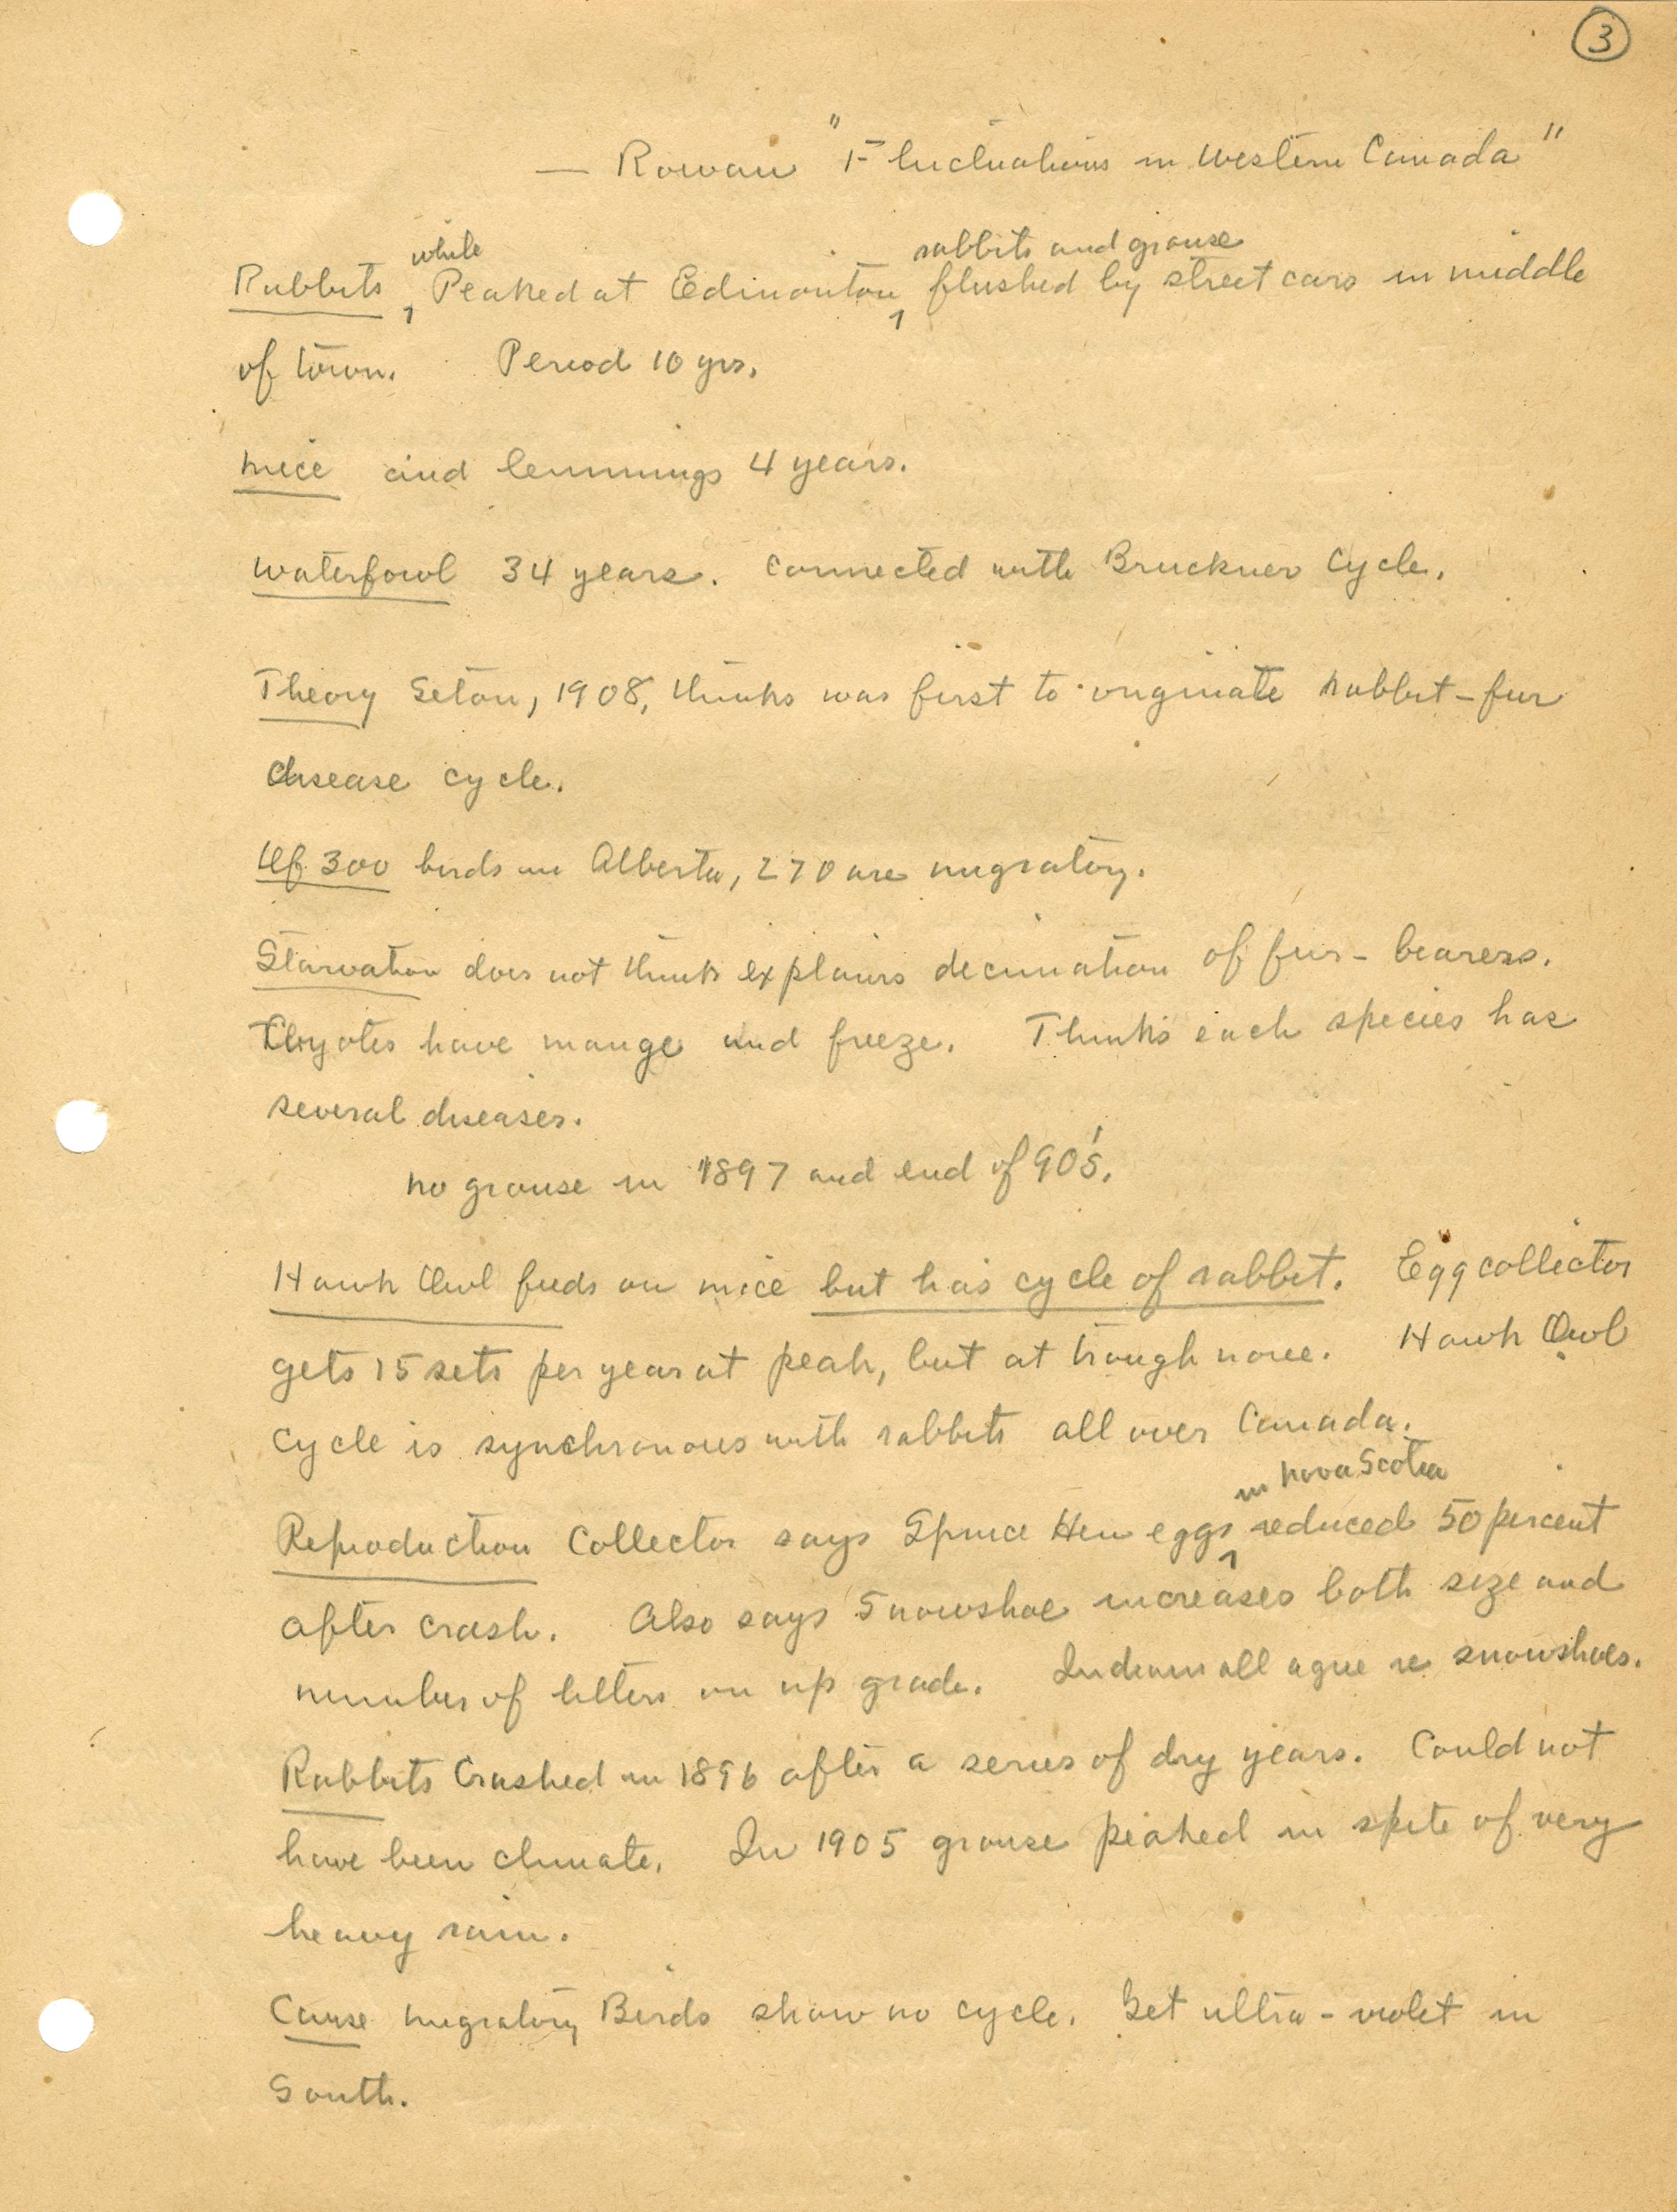 3
— Rowan "Fluctuations in Western Canada"
while rabbits and grouse
Rabbits Peaked at Edmonton flushed by street cars in middle
of town. Period 10 yrs.
Mice and lemmings 4 years.
Waterfowl 34 years. Connected with Bruckner Cycle.
Theory Seton, 1908, thinks was first to originate rabbit-fur
disease cycle.
Of 300 birds in Alberta, 270 are migratory.
Starvation does not think explains decimation of fur-bearers.
Coyotes have mange and freeze. Thinks each species has
several diseases.
No grouse in 1897 and end of 90's.
Hawk Owl feeds on mice but has cycle of rabbit. Egg collector
gets 15 sets per year at peak, but at trough none. Hawk Owl
cycle is synchronous with rabbits all over Canada.
in Nova Scotia
Reproduction Collector says Spruce Hen eggs reduced 50 percent
after crash. Also says Snowshoe increases both size and
number of litters on up grade. Indians all agree re snowshoes.
Rabbits Crashed in 1896 after a series of dry years. Could not
have been climate. In 1905 grouse peaked in spite of very
heavy rain.
Cause Migratory Birds show no cycle. Get ultra-violet in
South.